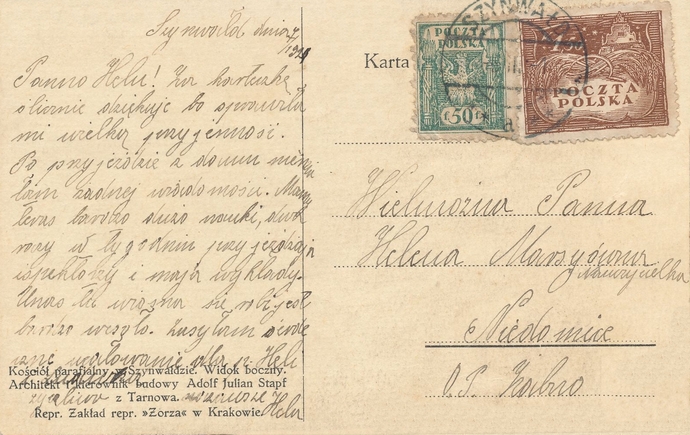 Szynwałd dnia
Panno Helu! Za karteczkę
ślicznie dziękuję bo sprawiła
mi wielką przyjemność.
Po przyjeździe z domu nie
łam żadnej wiadomości. Mamy
teraz bardzo dużo nauki, dwa
razy w tygodniu przyjeżdżają
i mają wykłady.
U nas tu wiosna się robi jest
bardzo wesoło. Zasyłam
ucałowanie dla p. Heli
Hela
Kościół parafialny w Szynwałdzie. Widok boczny.
Architekt i kierownik budowy Adolf Julian Stapf
z Tarnowa.
Repr. Zakład repr. »Zorza« w Krakowie.
Karta
POCZTA
POLSKA
50
SZYNWAŁD
POCZTA
POLSKA
Wielmożna Panna
Helena Marsyówna
nauczycielka
Niedomice
O.P. Żabno